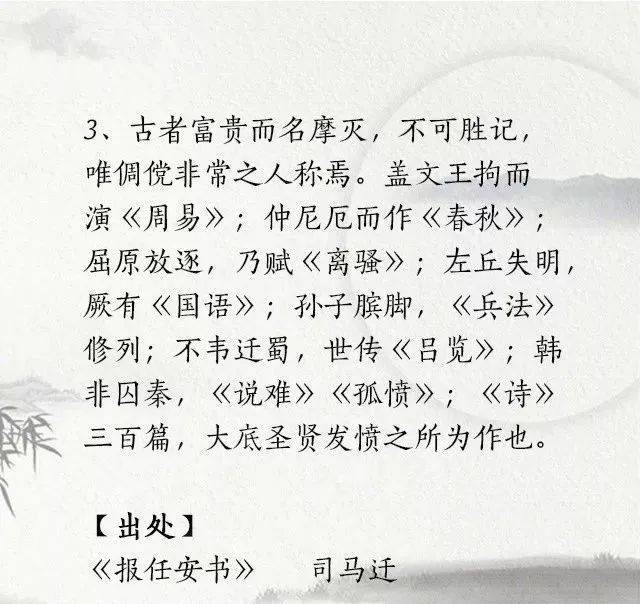 3、古者富贵而名摩灭，不可胜记，
唯倜傥非常之人称焉。盖文王拘而
演《周易》；仲尼厄而作《春秋》；
屈原放逐，乃赋《离骚》；左丘失明，
厥有《国语》；孙子膑脚，《兵法》
修列；不韦迁蜀，世传《吕览》；韩
非囚秦，《说难》《孤愤》；《诗》
三百篇，大底圣贤发愤之所为作也。
【出处】
《报任安书》 司马迁